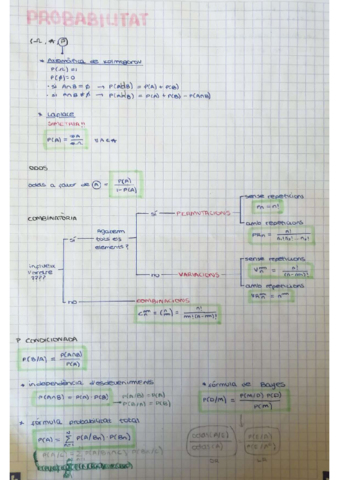 PROBABILITAT
(Ω, A, P)
* Axiomàtica de Kolmogorov
P(Ω) = 1
P(∅) = 0
· si A∩B = ∅ → P(A∪B) = P(A) + P(B)
· si A∩B ≠ ∅ → P(A∪B) = P(A) + P(B) - P(A∩B)
* Laplace
P(A) = #A / #Ω
ODDS
odds a favor de A = P(A) / 1-P(A)
COMBINATÒRIA
importa l'ordre ????
sí
Agafem tots els elements?
sí
PERMUTACIONS
sense repeticions
Pn = n!
amb repeticions
no
VARIACIONS
sense repeticions
amb repeticions
no
COMBINACIONS
P CONDICIONADA
P(B/A) = P(A∩B) / P(A)
* independència d'esdeveniments
P(A∩B) = P(A) · P(B)
P(A/B) = P(A)
P(B/A) = P(B)
* fórmula de Bayes
P(D/M) = P(M/D) P(D) / P(M)
* fórmula probabilitat total
P(A) = Σ P(A/Bn) · P(Bn)